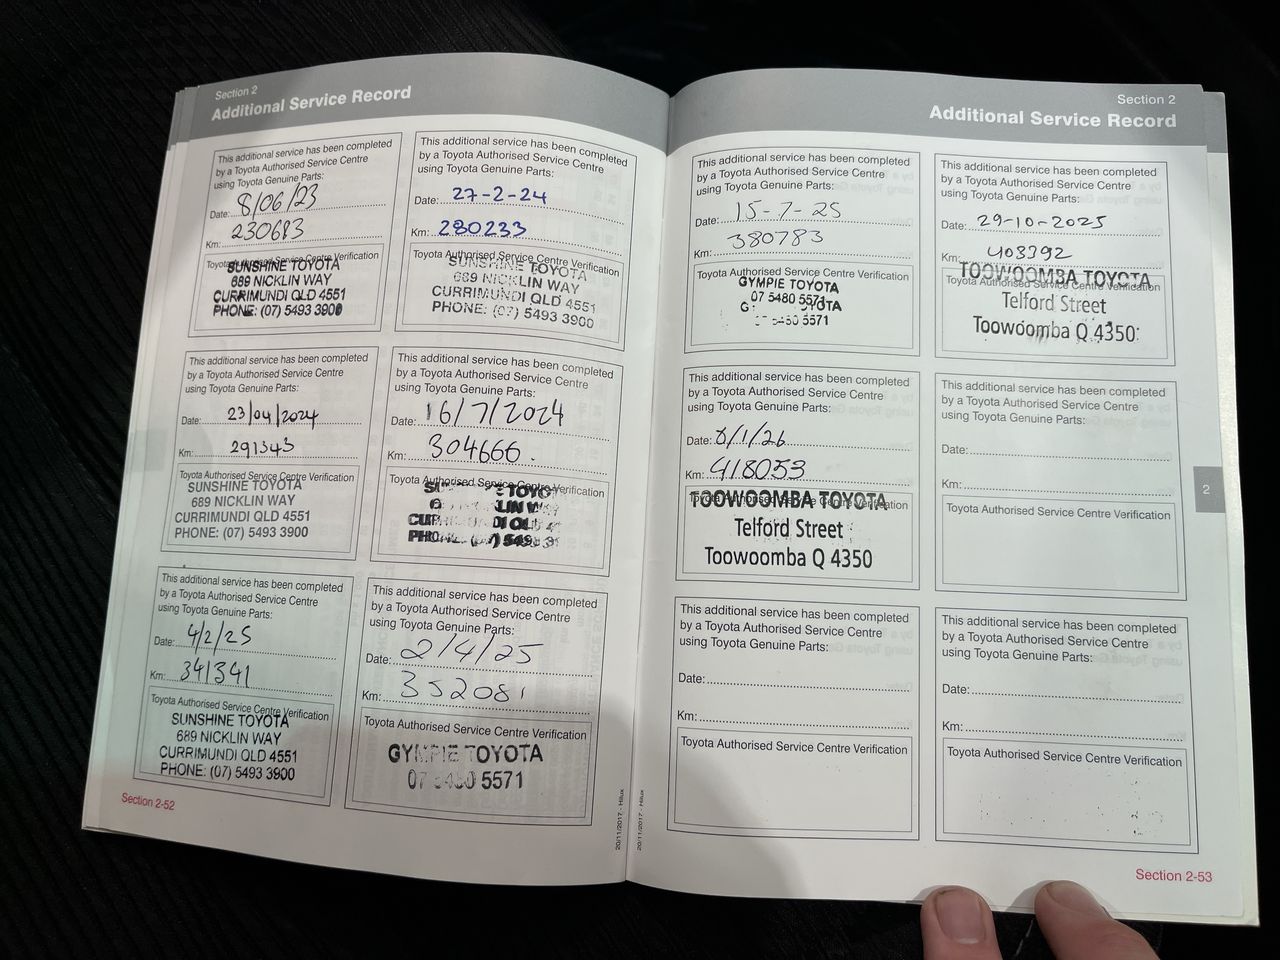 Section 2
Additional Service Record
This additional service has been completed
by a Toyota Authorised Service Centre
using Toyota Genuine Parts:
Date: 8/06/23
Km: 230683
Toyota Authorised Service Centre Verification
SUNSHINE TOYOTA
689 NICKLIN WAY
CURRIMUNDI QLD 4551
PHONE: (07) 5493 3900
This additional service has been completed
by a Toyota Authorised Service Centre
using Toyota Genuine Parts:
Date: 27-2-24
Km: 280233
Toyota Authorised Service Centre Verification
SUNSHINE TOYOTA
689 NICKLIN WAY
CURRIMUNDI QLD 4551
PHONE: (07) 5493 3900
This additional service has been completed
by a Toyota Authorised Service Centre
using Toyota Genuine Parts:
Date: 23/04/2024
Km: 291343
Toyota Authorised Service Centre Verification
SUNSHINE TOYOTA
689 NICKLIN WAY
CURRIMUNDI QLD 4551
PHONE: (07) 5493 3900
This additional service has been completed
by a Toyota Authorised Service Centre
using Toyota Genuine Parts:
Date: 16/7/2024
Km: 304666.
Toyota Authorised Service Centre Verification
This additional service has been completed
by a Toyota Authorised Service Centre
using Toyota Genuine Parts:
Date: 4/2/25
Km: 341341
Toyota Authorised Service Centre Verification
SUNSHINE TOYOTA
689 NICKLIN WAY
CURRIMUNDI QLD 4551
PHONE: (07) 5493 3900
This additional service has been completed
by a Toyota Authorised Service Centre
using Toyota Genuine Parts:
Date: 2/4/25
Km: 352081
Toyota Authorised Service Centre Verification
GYMPIE TOYOTA
07 5480 5571
Section 2-52
20/11/2017 - Hilux
Section 2
Additional Service Record
This additional service has been completed
by a Toyota Authorised Service Centre
using Toyota Genuine Parts:
Date: 15-7-25
Km: 380783
Toyota Authorised Service Centre Verification
GYMPIE TOYOTA
07 5480 5571
5480 5571
This additional service has been completed
by a Toyota Authorised Service Centre
using Toyota Genuine Parts:
Date: 29-10-2025
Km: 403392
Toyota Authorised Service Centre Verification
TOOWOOMBA TOYOTA
Telford Street
Toowoomba Q 4350
This additional service has been completed
by a Toyota Authorised Service Centre
using Toyota Genuine Parts:
Date: 8/1/26
Km: 418053
Toyota Authorised Service Centre Verification
TOOWOOMBA TOYOTA
Telford Street
Toowoomba Q 4350
This additional service has been completed
by a Toyota Authorised Service Centre
using Toyota Genuine Parts:
Date:
Km:
Toyota Authorised Service Centre Verification
This additional service has been completed
by a Toyota Authorised Service Centre
using Toyota Genuine Parts:
Date:
Km:
Toyota Authorised Service Centre Verification
This additional service has been completed
by a Toyota Authorised Service Centre
using Toyota Genuine Parts:
Date:
Km:
Toyota Authorised Service Centre Verification
2
20/11/2017 - Hilux
Section 2-53